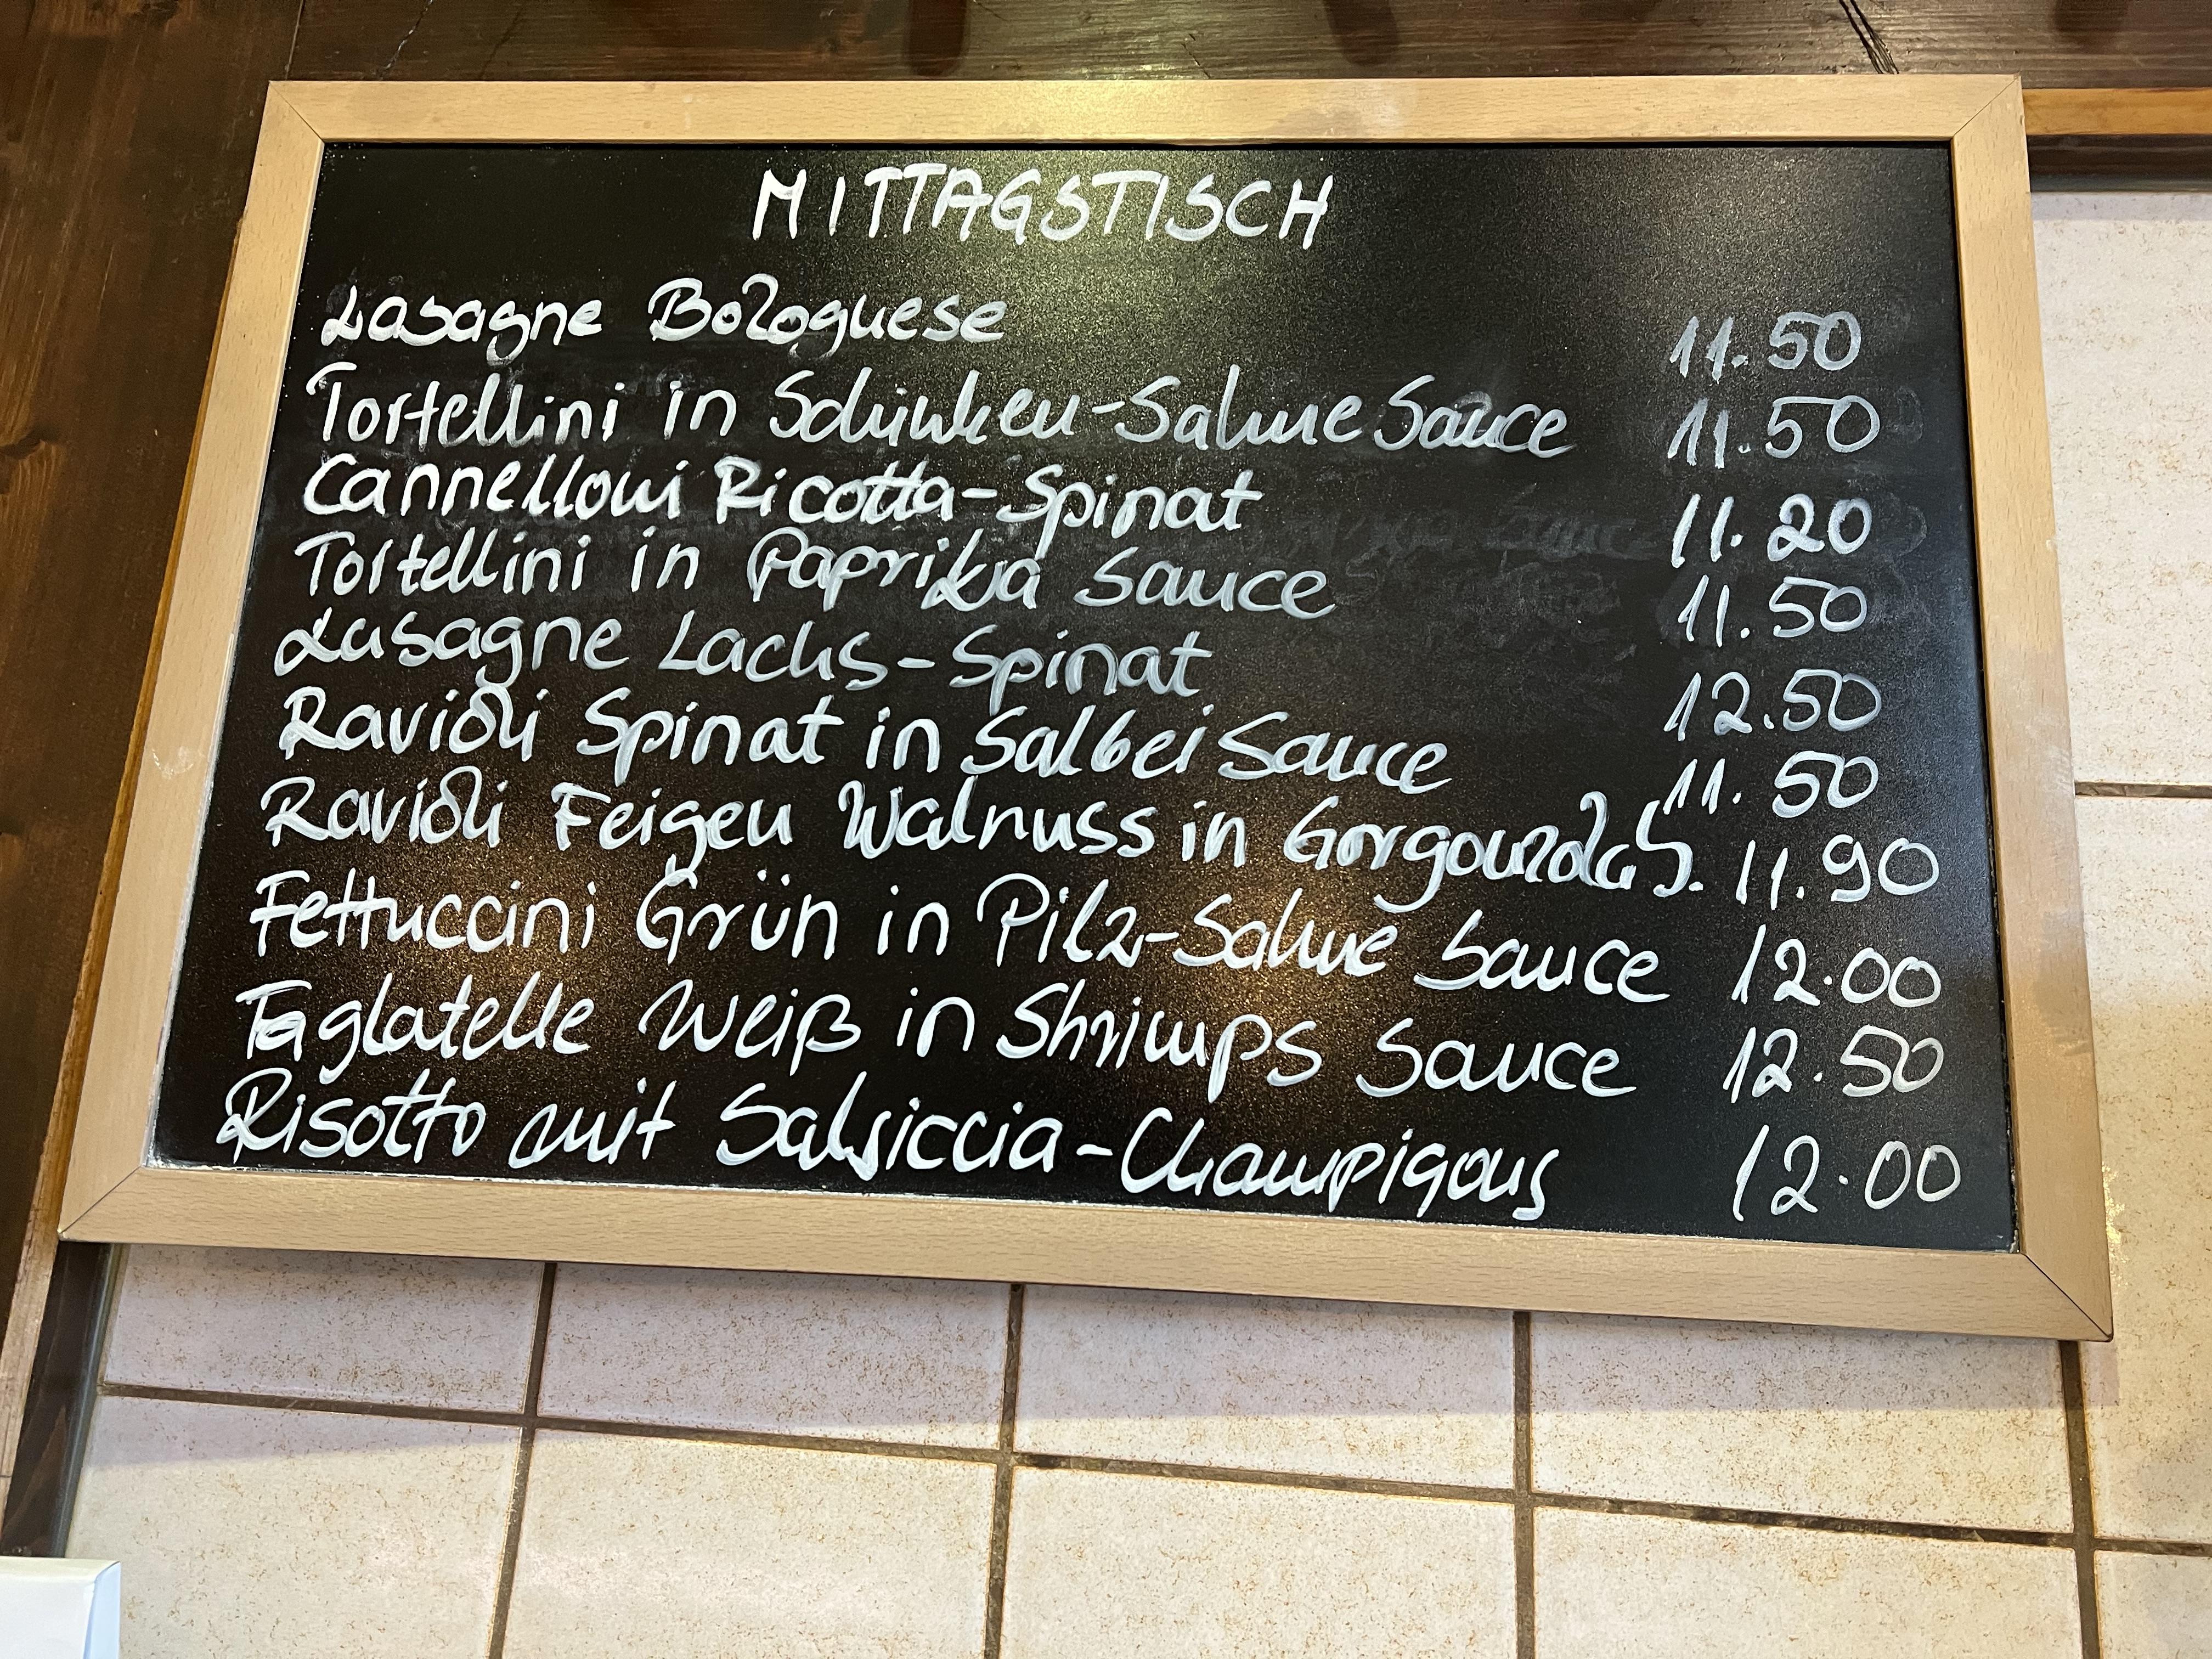 MITTAGSTISCH
Lasagne Bolognese 11.50
Tortellini in Schinken-Sahne Sauce 11.50
Cannelloni Ricotta-Spinat 11.20
Tortellini in Paprika Sauce 11.50
Lasagne Lachs-Spinat 12.50
Ravioli Spinat in Salbei Sauce 11.50
Ravioli Feigen Walnuss in Gorgonzola S. 11.90
Fettuccini Grün in Pilz-Sahne Sauce 12.00
Taglatelle Weiß in Shrimps Sauce 12.50
Risotto mit Salsiccia-Champigons 12.00